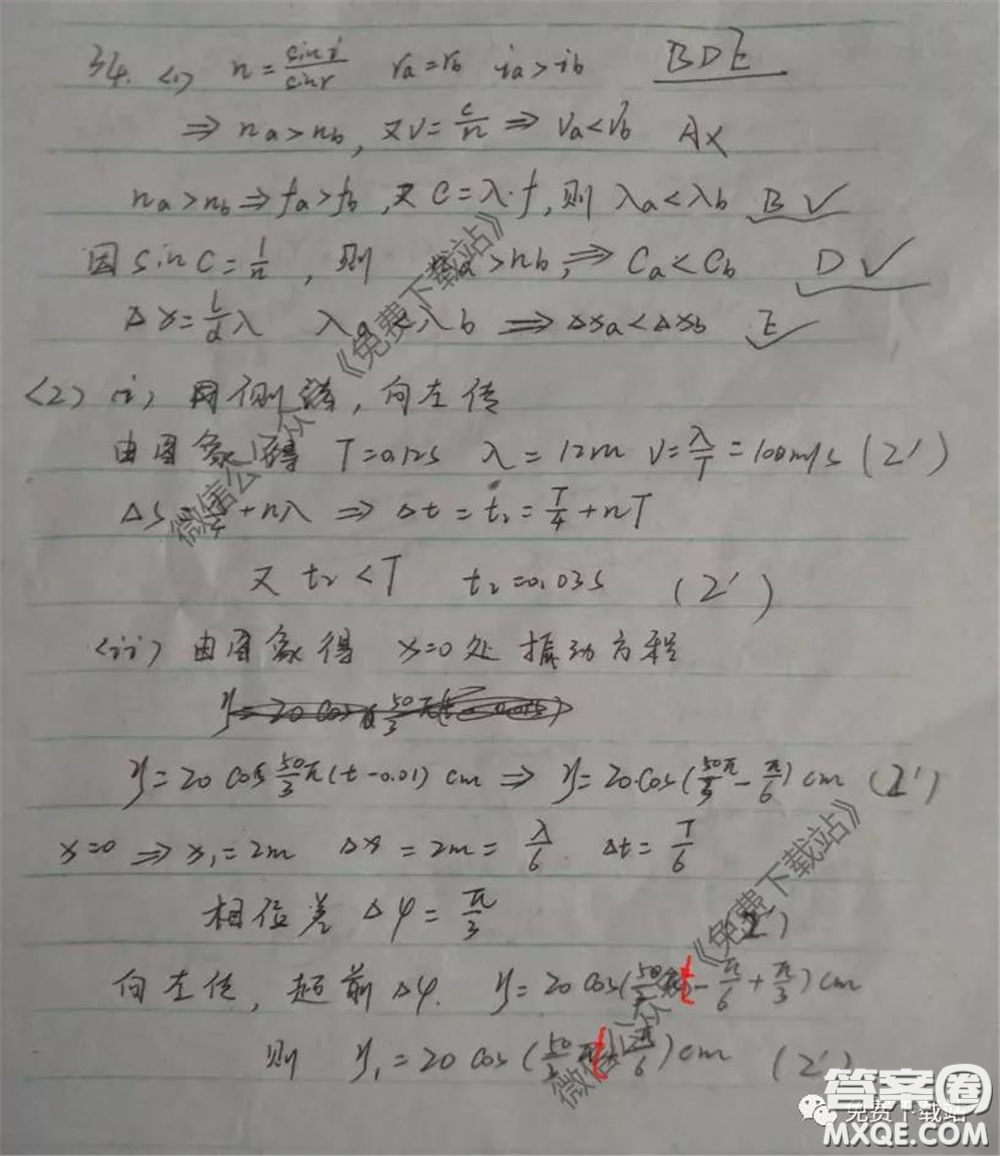 34. <1> n = sin i / sin r  ra = rb  ia > ib  BDE
⇒ na > nb, 又 v = c/n ⇒ va < vb  A×
na > nb ⇒ fa > fb, 又 C = λ·f, 则 λa < λb  B ✓
因 sin C = 1/n, 则 na > nb, ⇒ Ca < Cb  D ✓
Δx = L/d λ  λa < λb ⇒ Δxa < Δxb  E ✓
<2> (i) 同侧法, 向左传
由图象得 T = 0.12s  λ = 12m  v = λ/T = 100m/s (2')
+ nλ ⇒ Δt = t₂ = T/4 + nT
又 t₂ < T  t₂ = 0.03s (2')
<ii> 由图象得 x=0 处振动方程
y = 20 cos 50/3 π (t - 0.01) cm ⇒ y = 20·cos(50π/3 - π/6) cm (2')
x=0 ⇒ x₁ = 2m  Δx = 2m = λ/6  Δt = T/6
相位差 Δφ = π/3 (2')
向左传, 超前 Δφ. y = 20 cos(50/3 πt - π/6 + π/3) cm
则 y₁ = 20 cos (50/3 πt + π/6) cm (2')
微信公众《免费下载站》
微信公众《免费下载站》
答案圈
免费下载站
MXQE.COM